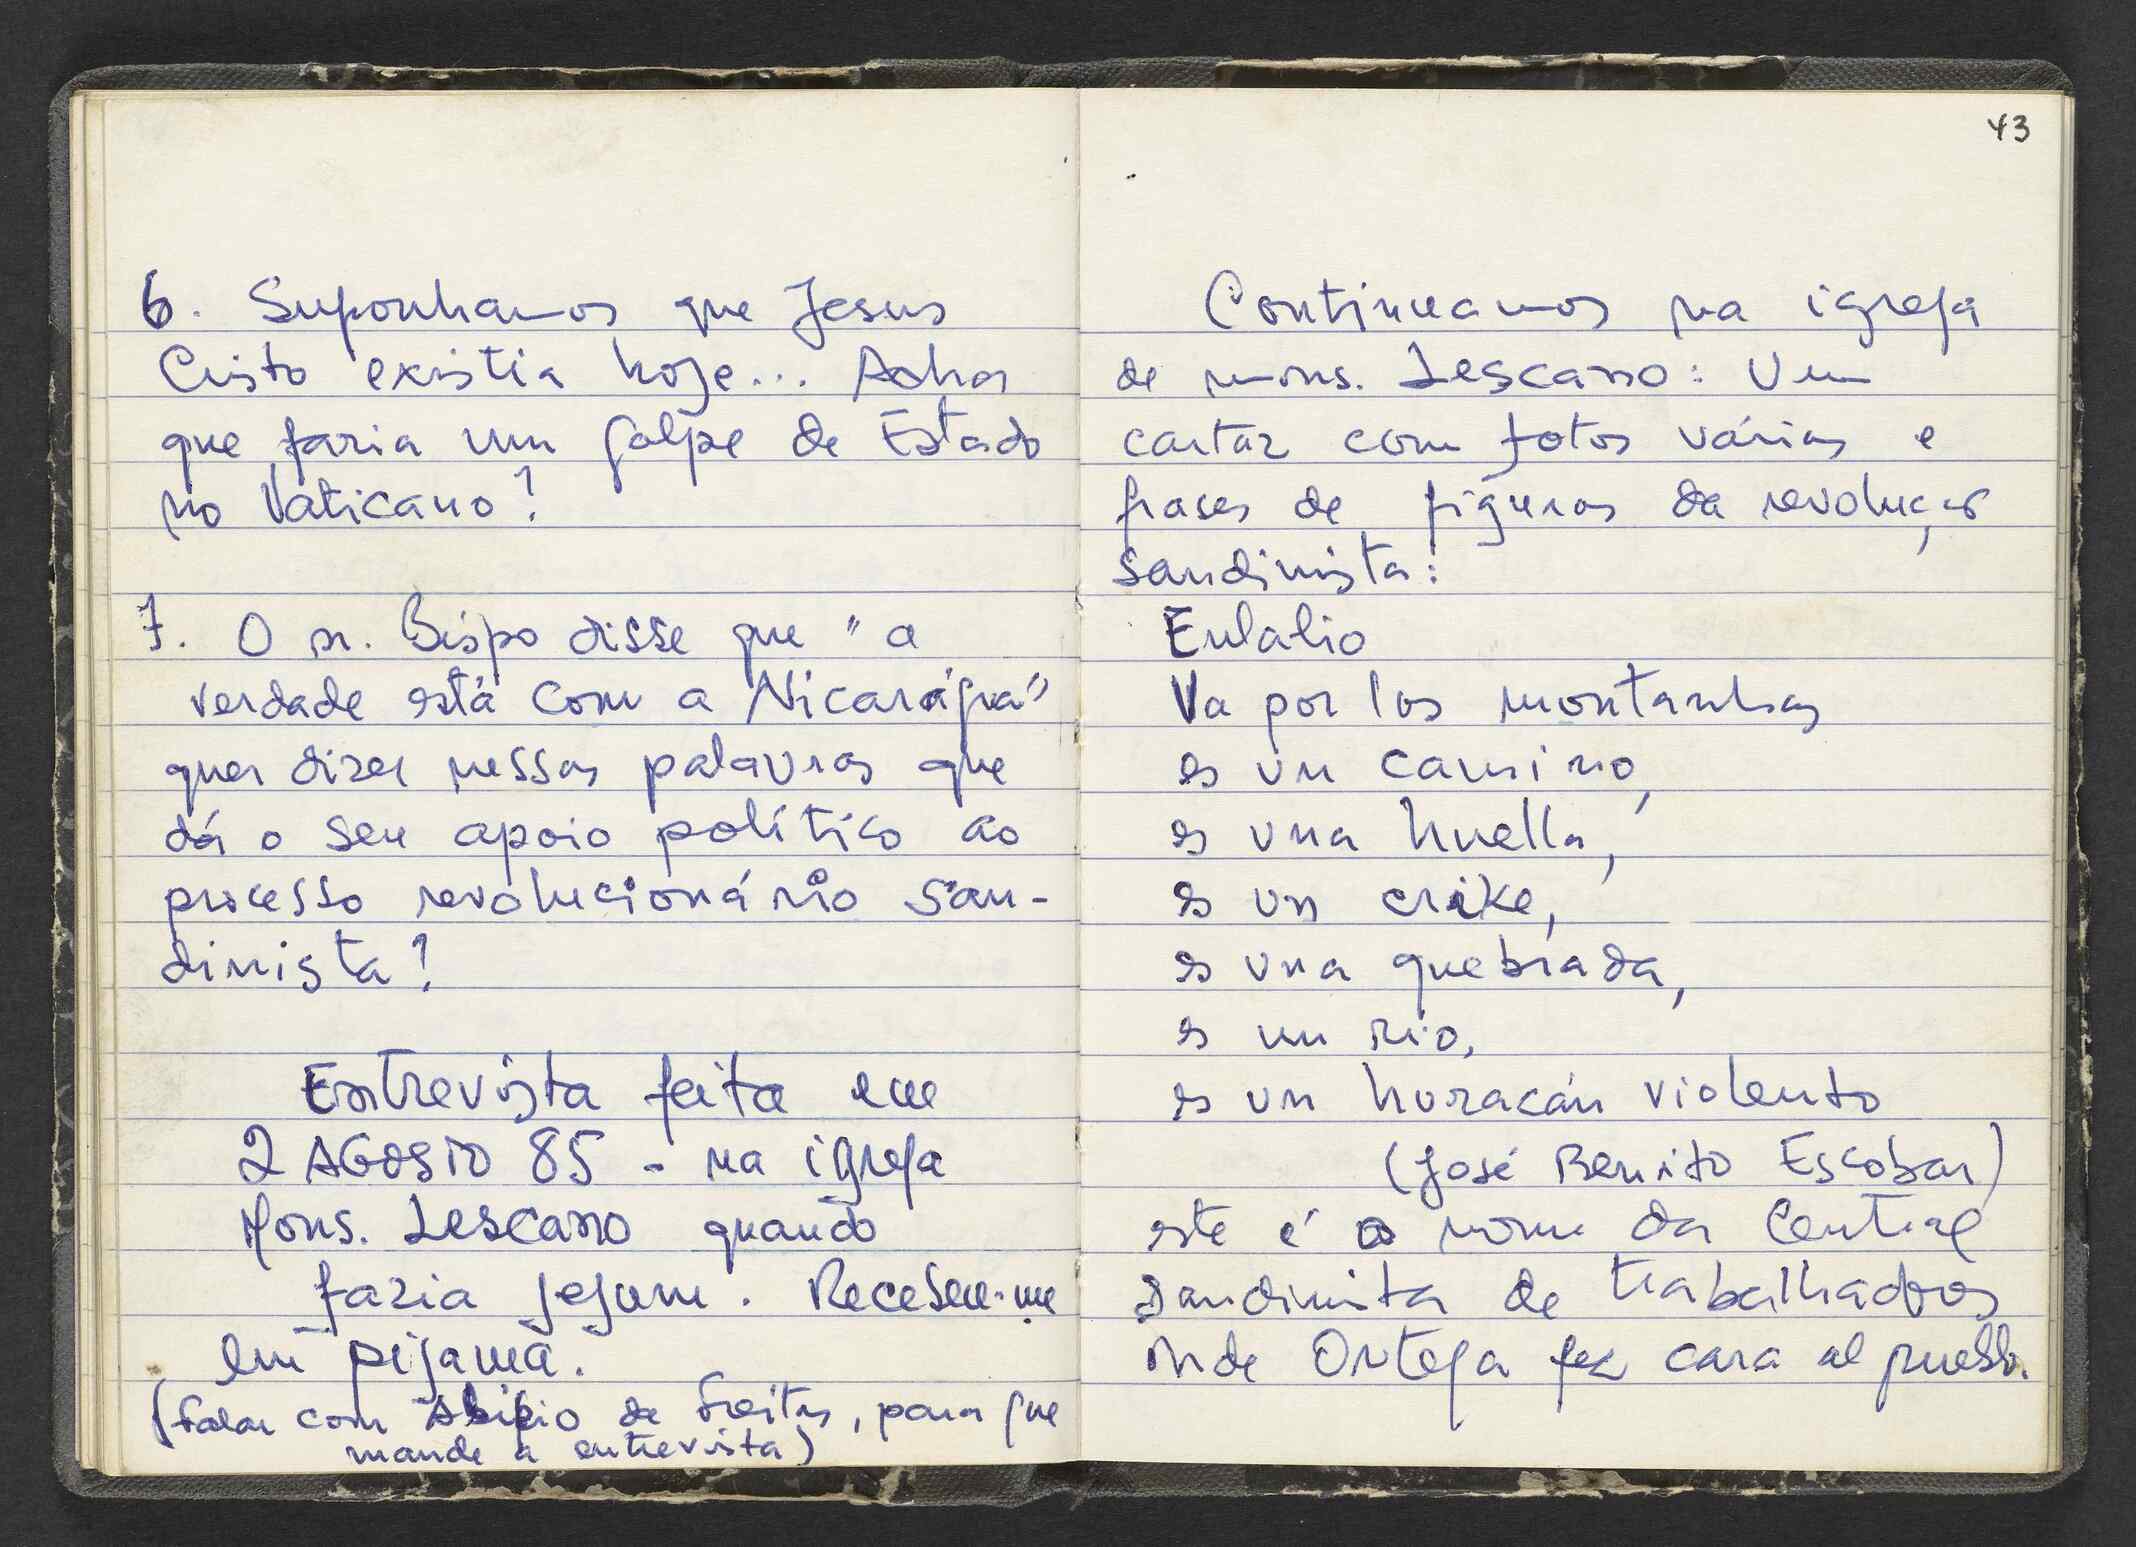 6. Suponhamos que Jesus
Cristo existia hoje... Achas
que faria um golpe de Estado
no Vaticano?
7. O sr. Bispo disse que "a
verdade está com a Nicarágua"
quer dizer nessas palavras que
dá o seu apoio político ao
processo revolucionário san-
dinista?
Entrevista feita em
2 AGOSTO 85 - na igreja
Mons. Lescano quando
fazia jejum. Recebeu-me
em pijama.
(Falar com Alípio de Freitas, para que
mande a entrevista)
43
Continuamos na igreja
de mons. Lescano: Um
cartaz com fotos várias e
frases de figuras da revolução
sandinista:
Eulalio
Va por las montanhas
es un camino,
es una huella,
es un crike,
es una quebrada,
es un rio,
es un huracán violento
(José Benito Escobar)
este é o nome da Central
Sandinista de trabalhadores
onde Ortega fez cara al pueblo.